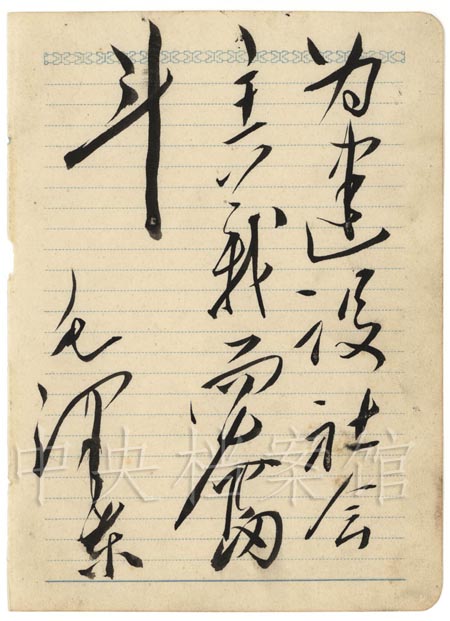 为建设社会
主義而奮
斗
毛澤东
中央档案馆